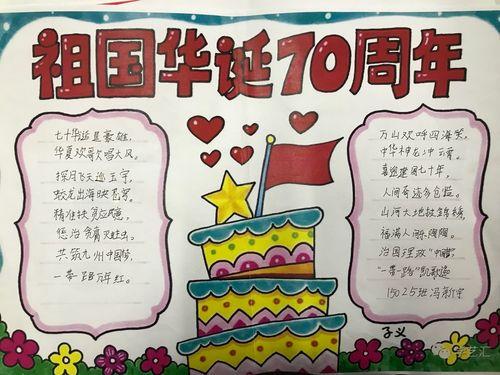 祖国华诞70周年
七十华诞显豪雄,
华夏欢歌唱大风。
探月飞天巡玉宇,
蛟龙出海映苍穹。
精准扶贫应随意,
惩治贪腐灭蛀虫。
共筑九州中国梦,
一带一路万年红。
万山欢呼四海笑,
中华神龙冲云霄。
喜迎建国七十年,
人间奇迹多
山河大地披锦绣,
福满人间
治国理政"中
"一带一路"凯歌
15025班冯新宇
子义
学艺汇